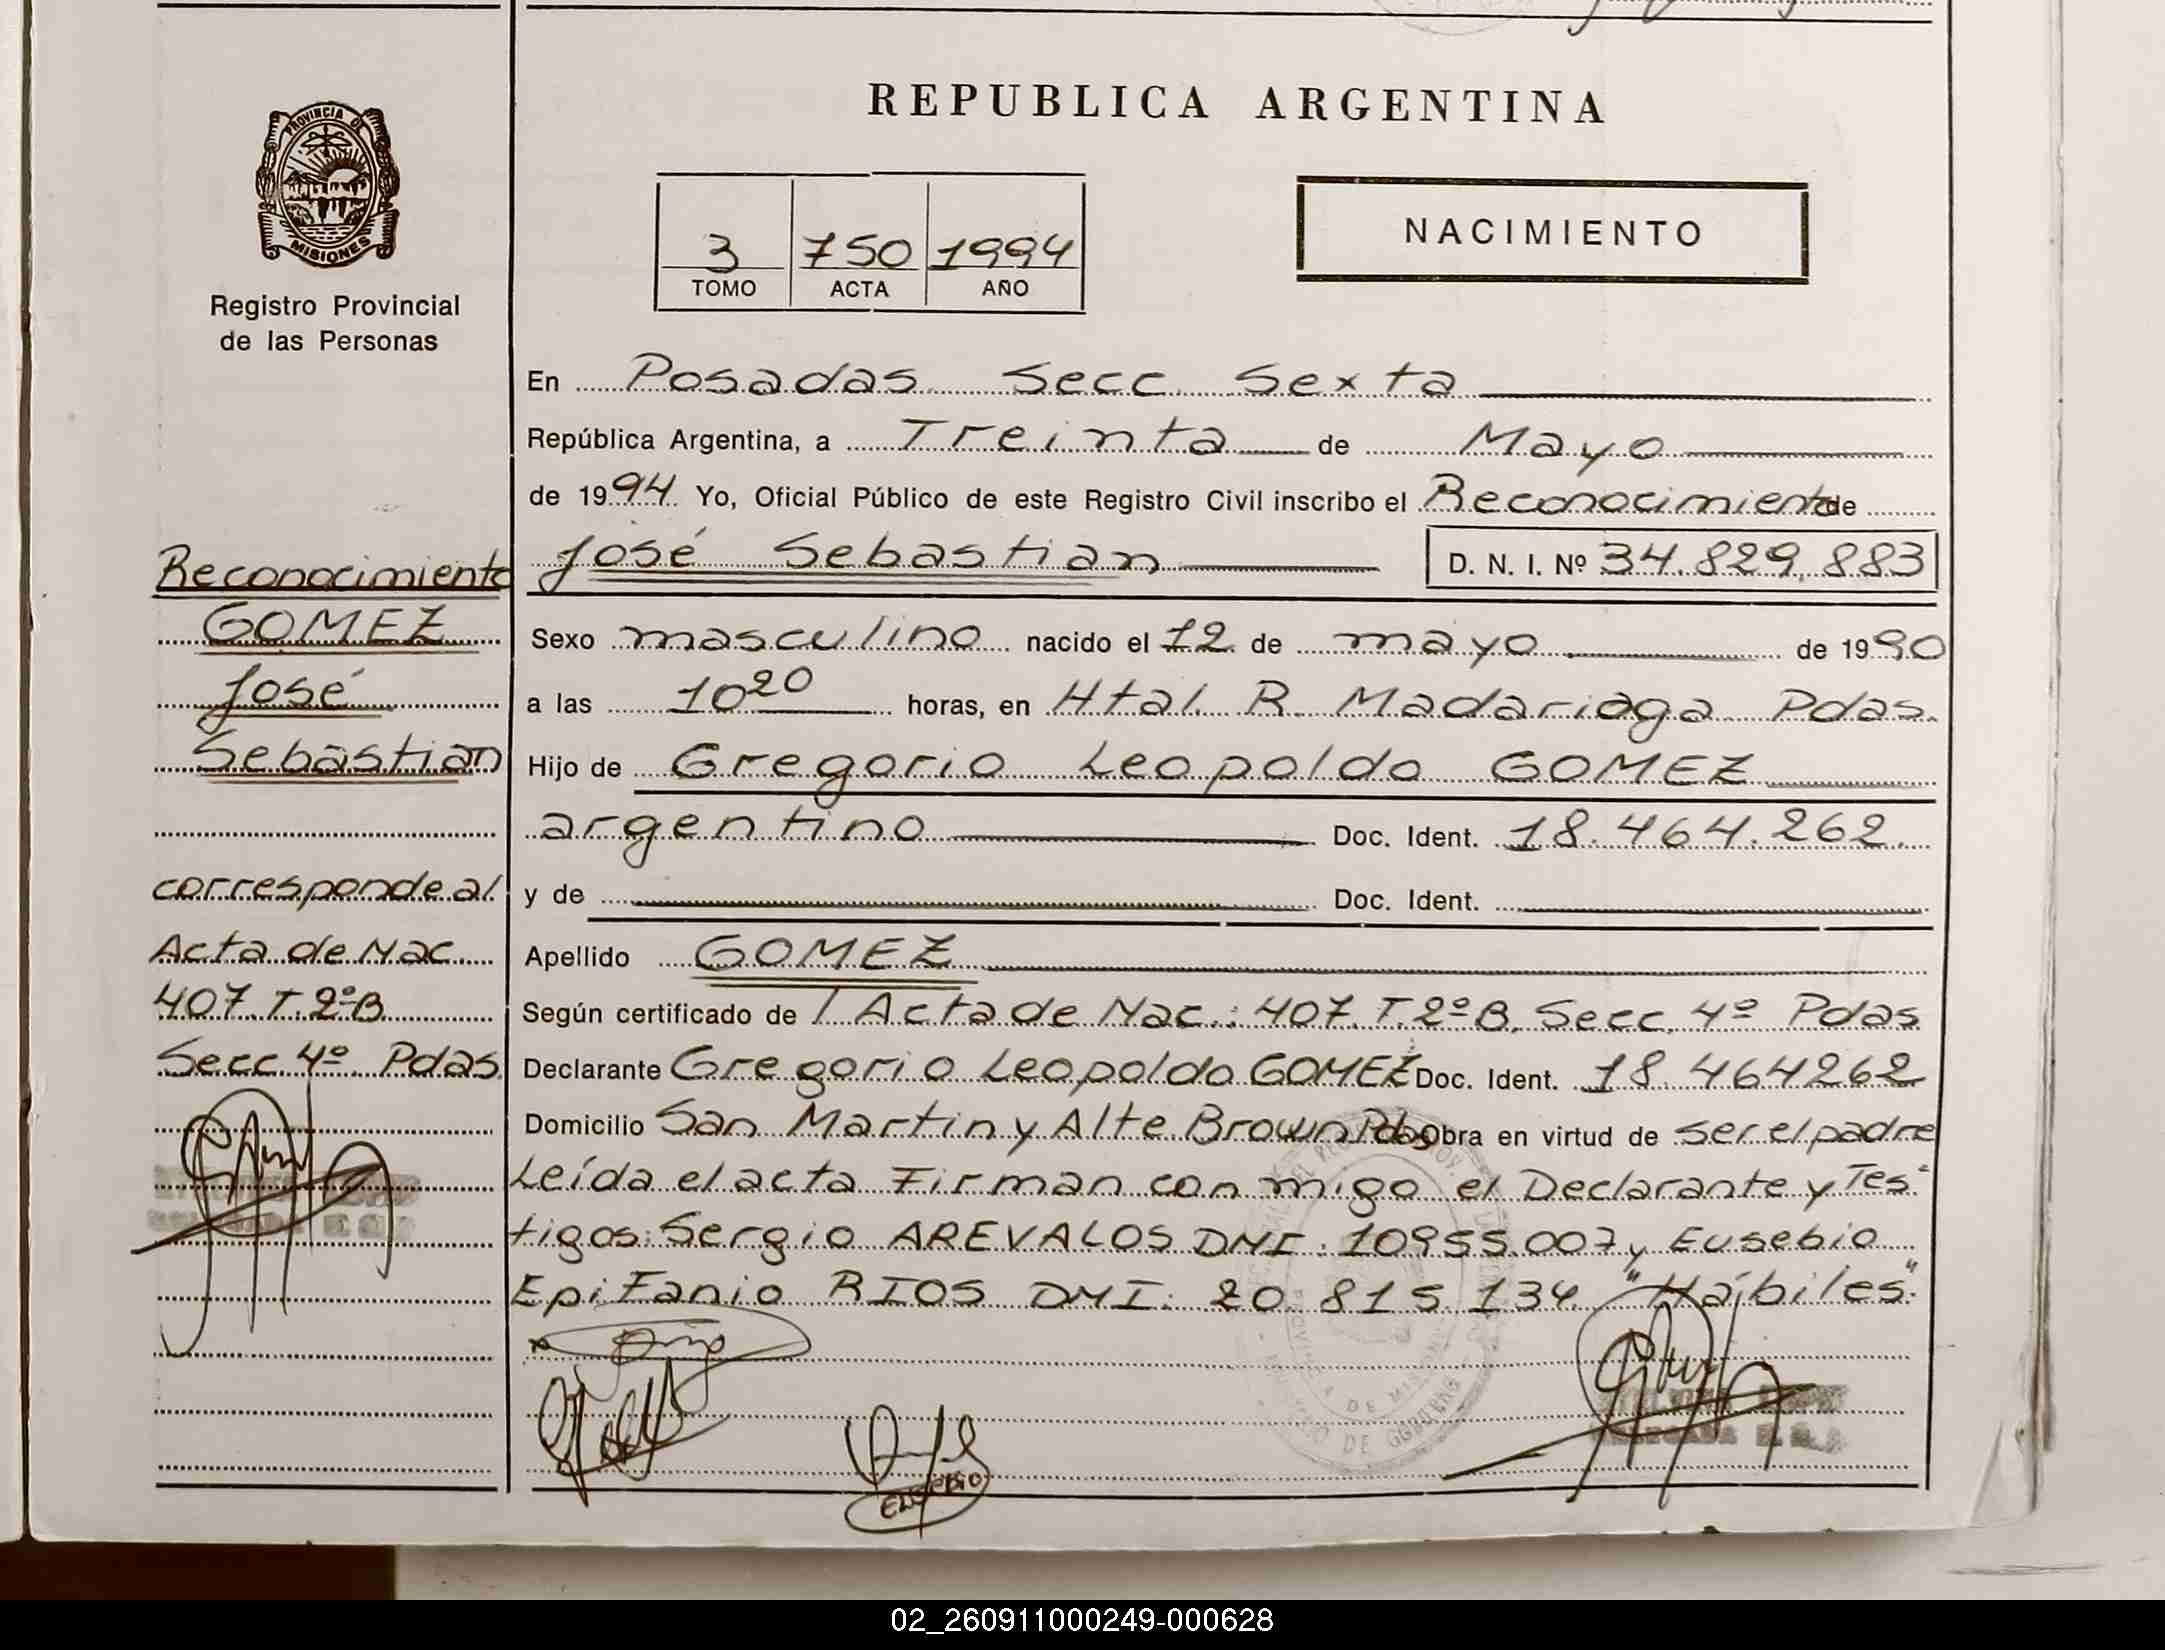 REPUBLICA ARGENTINA
PROVINCIA DE
MISIONES
Registro Provincial
de las Personas
3 750 1994
TOMO ACTA AÑO
NACIMIENTO
En Posadas Secc. Sexta
República Argentina, a Treinta de Mayo
de 1994 Yo, Oficial Público de este Registro Civil inscribo el Reconocimiento de
José Sebastian D. N. I. Nº 34.829.883
Sexo masculino nacido el 12 de mayo de 1990
a las 10 20 horas, en Htal. R. Madariaga Pdas.
Hijo de Gregorio Leopoldo GOMEZ
argentino Doc. Ident. 18.464.262.
y de Doc. Ident.
Apellido GOMEZ
Según certificado de / Acta de Nac.: 407. T. 2º B. Secc. 4º Pdas
Declarante Gregorio Leopoldo GOMEZ Doc. Ident. 18.464262
Domicilio San Martin y Alte. Brown Pdas Obra en virtud de ser el padre
Leída el acta Firman con migo el Declarante y Tes-
tigos: Sergio AREVALOS DNI: 10955.007 y Eusebio
Epifanio RIOS DNI: 20.815.134. "Hábiles".
Reconocimiento
GOMEZ
José
Sebastian
corresponde al
Acta de Nac.
407. T. 2º B
Secc 4º Pdas.
EUSEBIO
02_260911000249-000628